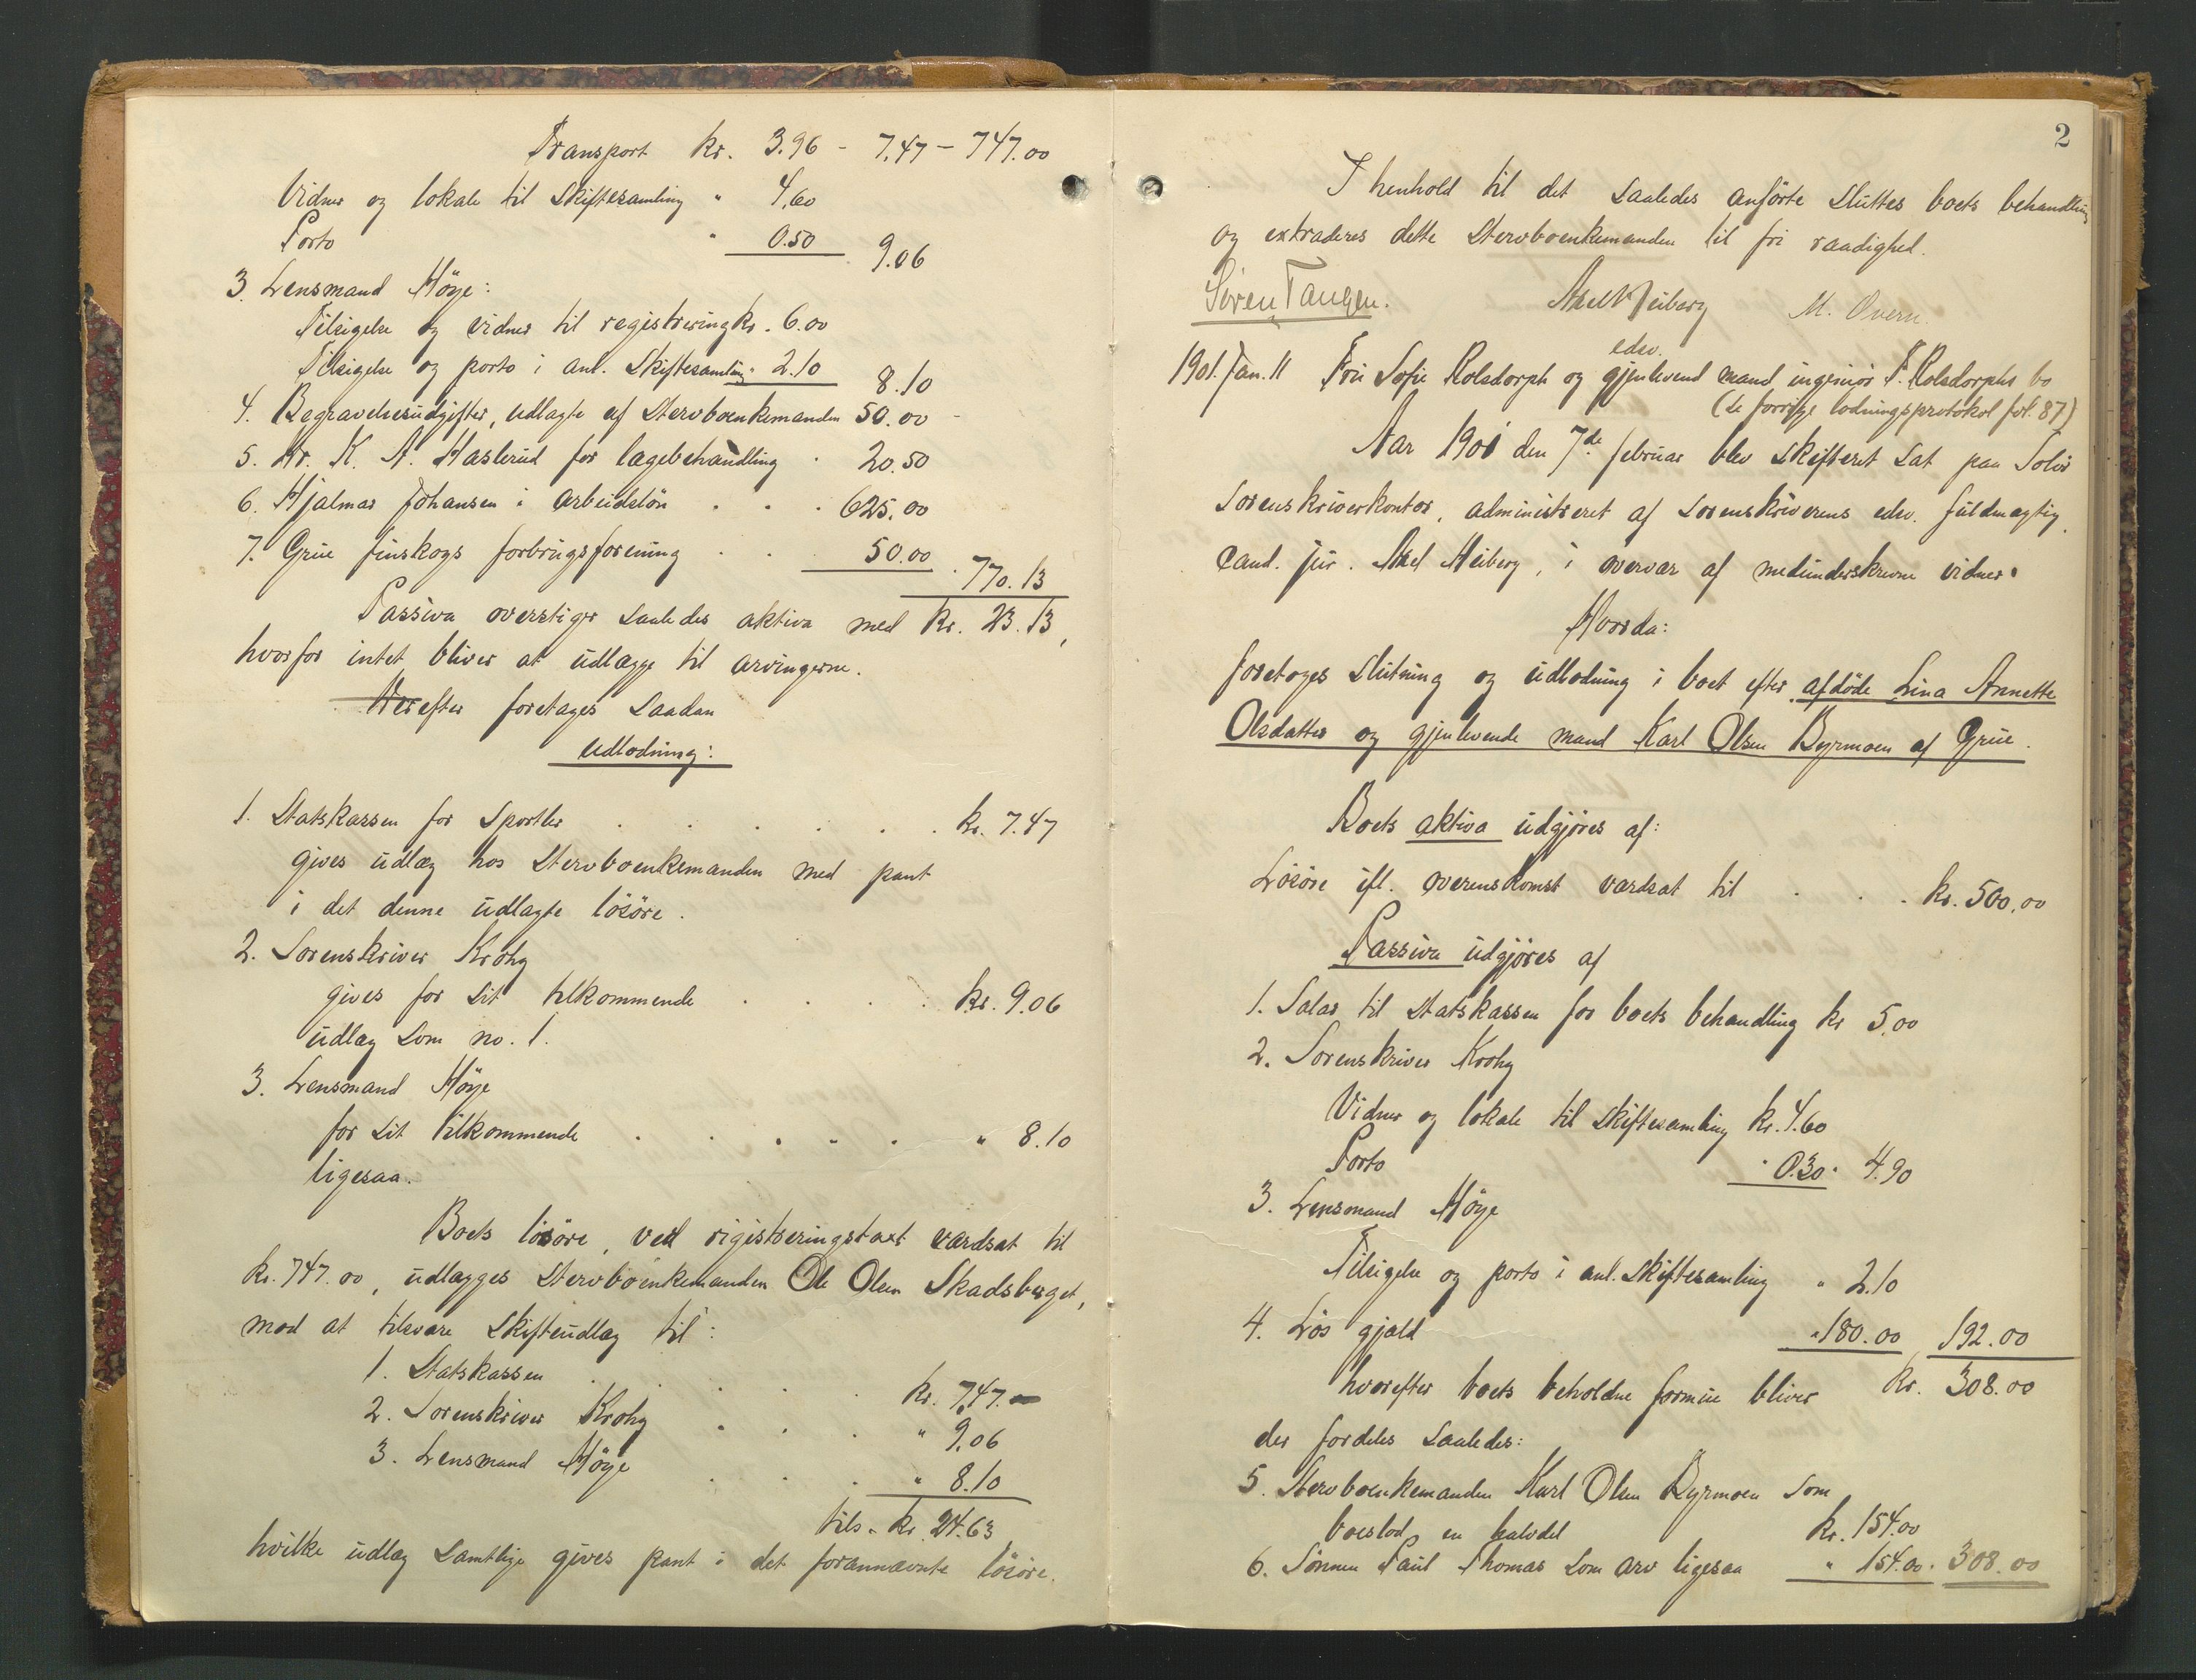 Transport kr. 3.96 - 7.47 - 747.00
Vidner og lokale til skiftesamling " 4.60
Porto " 0.50 9.06
3. Lensmand Höye:
Tilsigelse og vidner til registrering kr. 6.00
Tilsigelse og porto i anl. skiftesamling " 2.10 8.10
4. Begravelsesudgifter, udlagte af stervboenkemanden 50.00
5. Dr. K. A. Haslerud for lægebehandling 20.50
6. Hjalmar Johansen i arbeidslön 625.00
7. Grue finskogs forbrugsforening 50.00 770.13
Passiva overstiger saaledes aktiva med kr. 23.13,
hvorfor intet bliver at udlægge til arvingerne.
Derefter foretages saadan
udlodning:
1. Statskassen for sportler kr. 7.47
gives udlæg hos stervboenkemanden med pant
i det denne udlagte lösöre.
2. Sorenskriver Krohg
gives for sit tilkommende kr. 9.06
udlæg som no. 1.
3. Lensmand Höye
for sit tilkommende " 8.10
ligesaa.
Boets lösöre, ved rigistreringstaxt værdsat til
kr. 747.00, udlægges stervboenkemanden Ole Olsen Skadsberget,
mod at tilsvare skifteudlæg til:
1. Statskassen kr. 7.47.
2. Sorenskriver Krohg " 9.06
3. Lensmand Höye " 8.10
tils. kr. 24.63
hvilke udlæg samtlige gives pant i det forannævnte lösöre.
2
I henhold til det saaledes anförte sluttes boets behandling
og extraderes dette stervboenkemanden til fri raadighed.
Sören Tangen. Axel Heiberg M. Overn
edv.
1901. Jan. 11 Fru Sofie Rolsdorph og gjenlevend mand ingeniör F. Rolsdorphs bo
(se forrige lodningsprotokol fol. 87)
Aar 1901 den 7de februar blev skifteret sat paa Solör
sorenskriverkontor, administreret af sorenskriverens edsv. fuldmægtig,
cand. jur. Axel Heiberg, i overvær af medunderskrevne vidner.
Hvorda:
foretoges slutning og udlodning i boet efter afdöde Lina Annette
Olsdatter og gjenlevende mand Karl Olsen Byrmoen af Grue.
Boets aktiva udgjöres af:
Lösöre ifl. overenskomst værdsat til kr. 500.00
Passiva udgjöres af
1. Salær til statskassen for boets behandling kr 5.00
2. Sorenskriver Krohg
Vidner og lokale til skiftesamling kr. 4.60
Porto " 0.30 " 4.90
3. Lensmand Höye
Tilsigelse og porto i anl. skiftesamling " 2.10
4. Lös gjæld " 180.00 192.00
hvorefter boets beholdne formue bliver kr. 308.00
der fordeles saaledes:
5. Stervboenkemanden Karl Olsen Byrmoen som
boeslod en halvdel kr. 154.00
6. Sönnen Paul Thomas som arv ligesaa " 154.00. 308.00